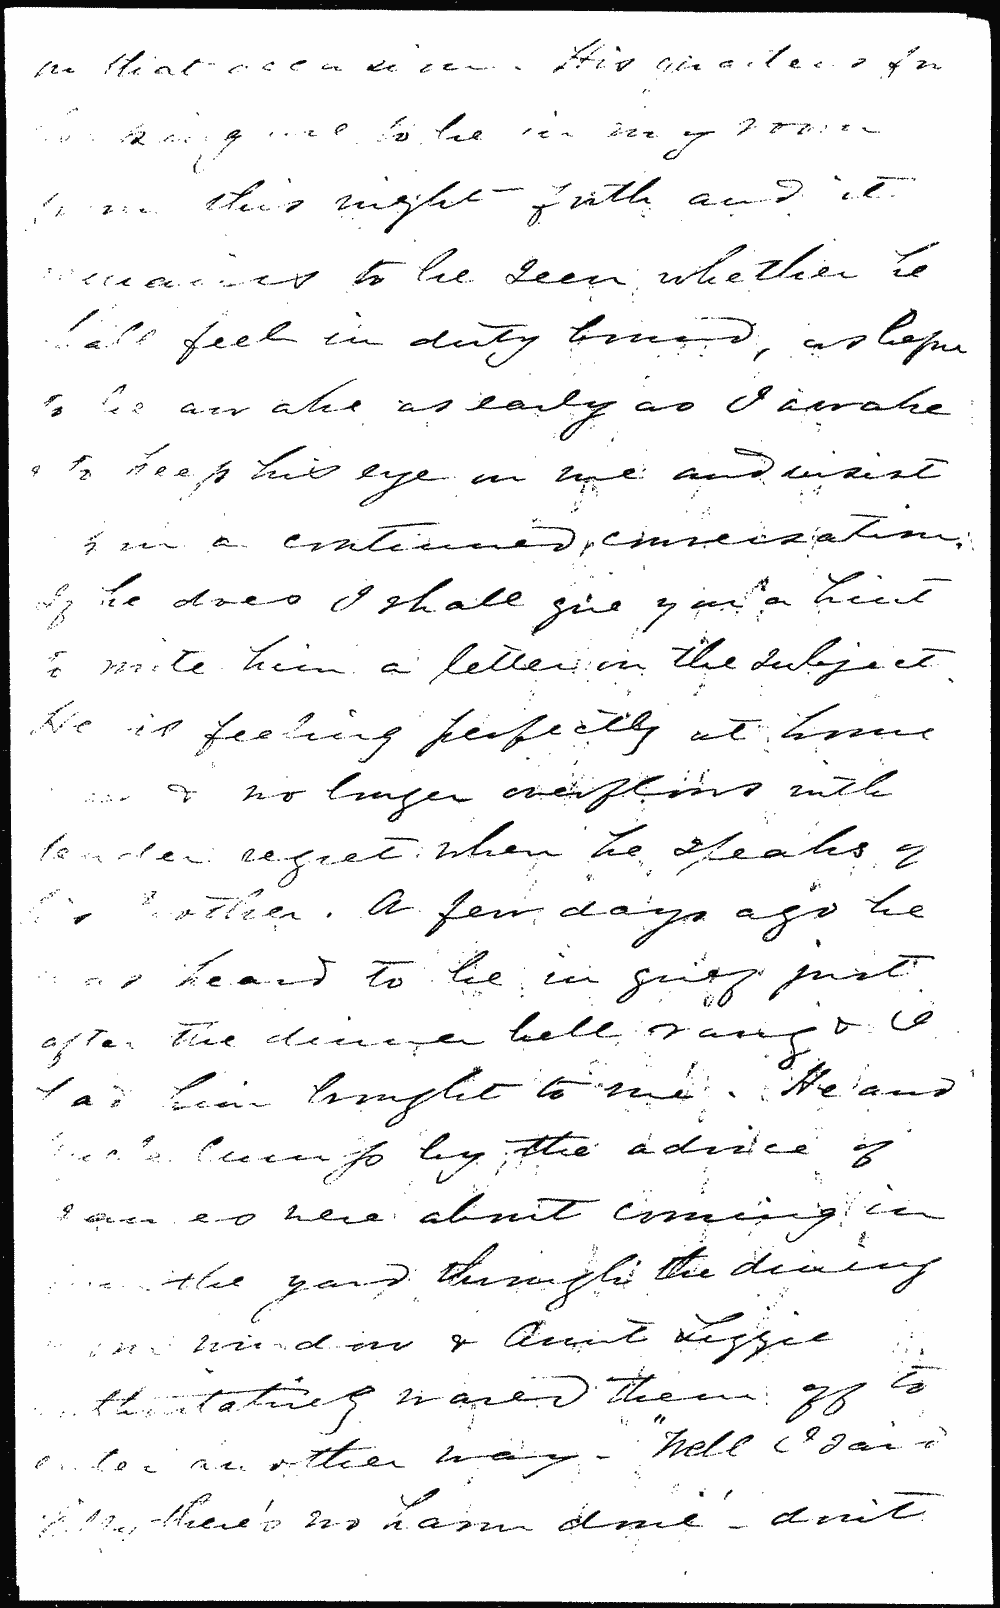 on that occasion. His quarters for
are to be in my room
from this night forth and it
remains to be seen whether he
shall feel in duty bound, as before
to be awake as early as I awake
& to keep his eye on me and insist
on a continued conversation.
If he does I shall give you a hint
to write him a letter on the subject.
He is feeling perfectly at home
now & no longer overflows with
tender regret when he speaks of
his mother. A few days ago he
was heard to be in grief just
after the dinner bell rang & I
had him brought to me. He and
by the advice of
were about coming in
from the yard through the dining
room window & Aunt Lizzie
authoritatively waved them off to
enter another way - "Well I said
there's no harm done' - don't